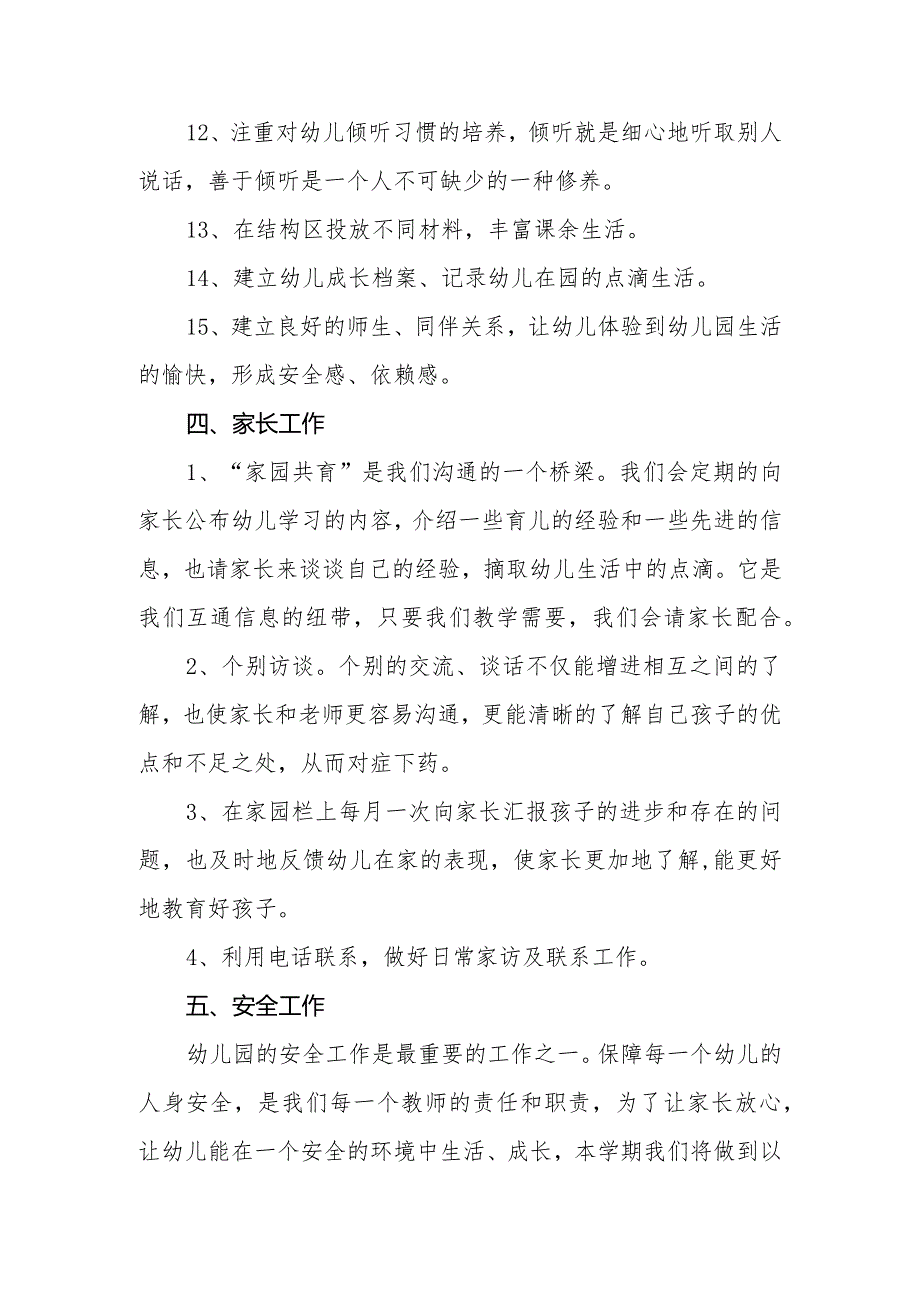 12、注重对幼儿倾听习惯的培养，倾听就是细心地听取别人
说话，善于倾听是一个人不可缺少的一种修养。
13、在结构区投放不同材料，丰富课余生活。
14、建立幼儿成长档案、记录幼儿在园的点滴生活。
15、建立良好的师生、同伴关系，让幼儿体验到幼儿园生活
的愉快，形成安全感、依赖感。
四、家长工作
1、“家园共育”是我们沟通的一个桥梁。我们会定期的向
家长公布幼儿学习的内容，介绍一些育儿的经验和一些先进的信
息，也请家长来谈谈自己的经验，摘取幼儿生活中的点滴。它是
我们互通信息的纽带，只要我们教学需要，我们会请家长配合。
2、个别访谈。个别的交流、谈话不仅能增进相互之间的了
解，也使家长和老师更容易沟通，更能清晰的了解自己孩子的优
点和不足之处，从而对症下药。
3、在家园栏上每月一次向家长汇报孩子的进步和存在的问
题，也及时地反馈幼儿在家的表现，使家长更加地了解,能更好
地教育好孩子。
4、利用电话联系，做好日常家访及联系工作。
五、安全工作
幼儿园的安全工作是最重要的工作之一。保障每一个幼儿的
人身安全，是我们每一个教师的责任和职责，为了让家长放心，
让幼儿能在一个安全的环境中生活、成长，本学期我们将做到以